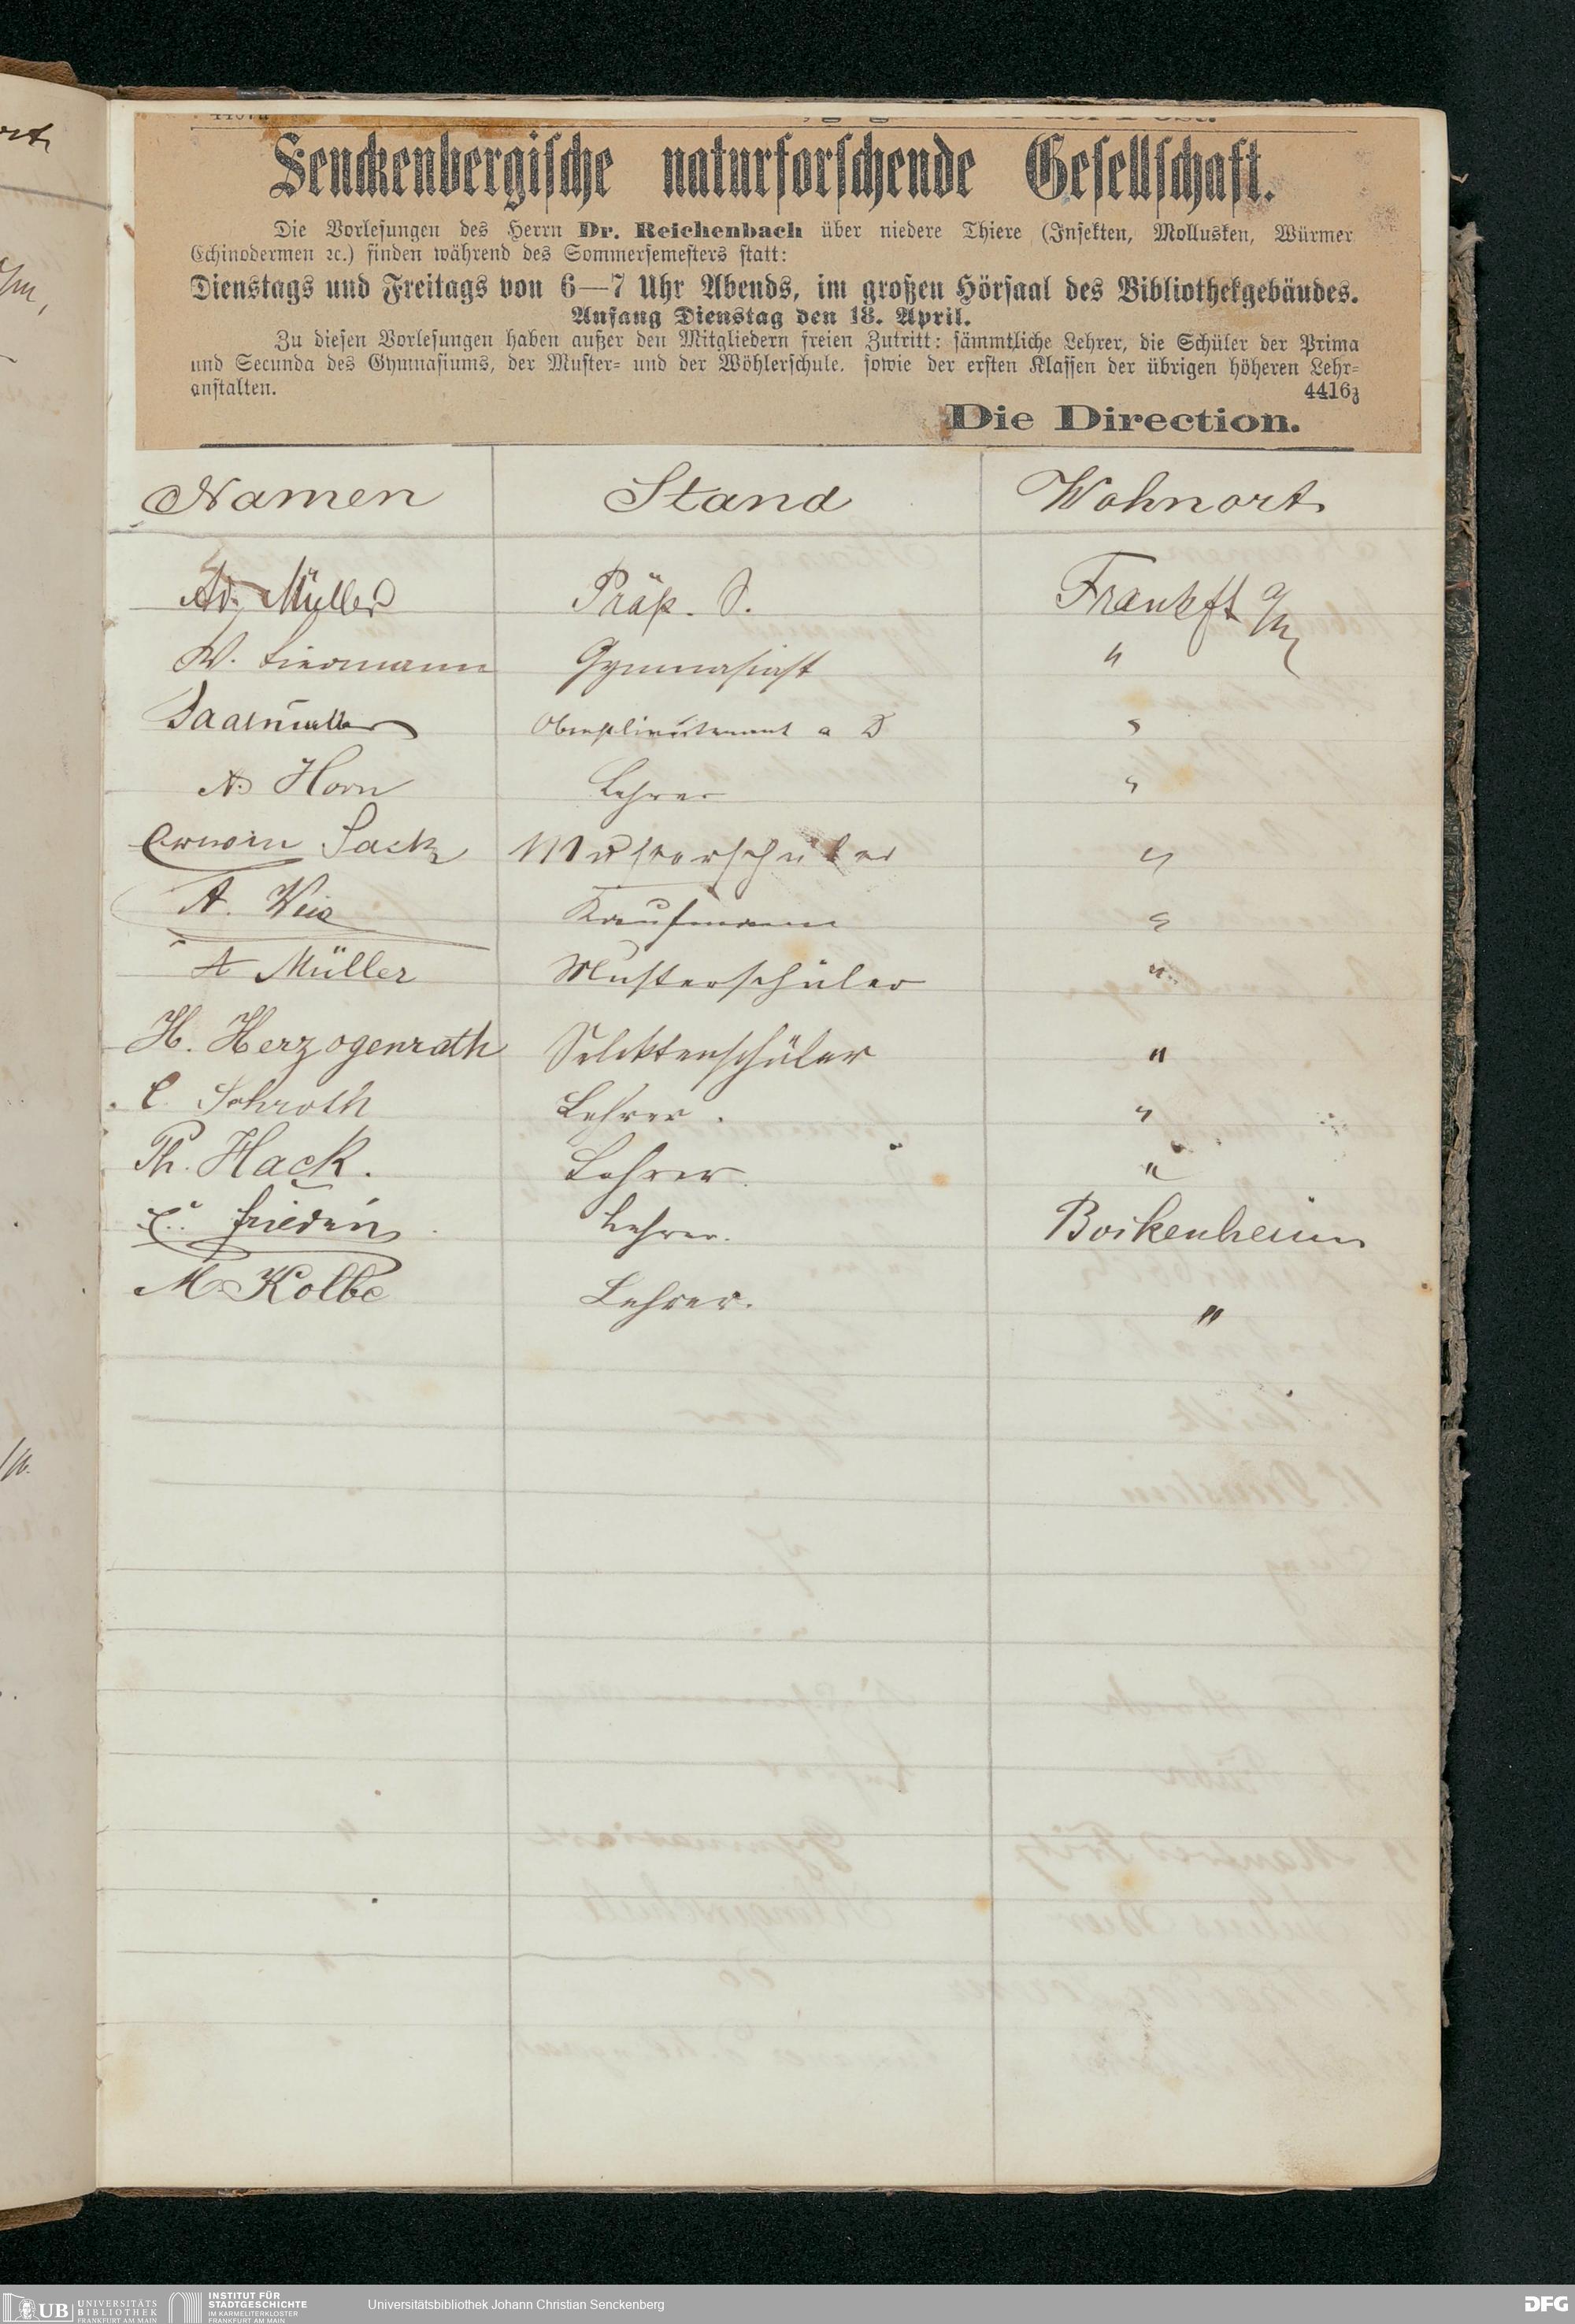 Senckenbergische naturforschende Gesellschaft.
Die Vorlesungen des Herrn Dr. Reichenbach über niedere Thiere (Insekten, Mollusken, Würmer
Echinodermen ꝛc.) finden während des Sommersemesters statt:
Dienstags und Freitags von 6—7 Uhr Abends, im großen Hörsaal des Bibliothekgebäudes.
Anfang Dienstag den 18. April.
Zu diesen Vorlesungen haben außer den Mitgliedern freien Zutritt: sämmtliche Lehrer, die Schüler der Prima
und Secunda des Gymnasiums, der Muster- und der Wöhlerschule, sowie der ersten Klassen der übrigen höheren Lehr-
anstalten. 4416z
Die Direction.
Namen Stand Wohnort
Ad. Müller Präp. S. Frankft a/M
W. Gymnasiast "
Saalmüller Oberstlieutenant a D "
A. Horn Lehrer "
Erwin Sack Musterschüler "
A. Weis Kaufmann "
A Müller Musterschüler "
H. Herzogenrath Selektenschüler "
C. Schroth Lehrer. "
Ph. Hack. Lehrer. "
Lehrer. Bockenheim
M. Kolbe Lehrer. "
UB UNIVERSITÄTS
BIBLIOTHEK
FRANKFURT AM MAIN
INSTITUT FÜR
STADTGESCHICHTE
IM KARMELITERKLOSTER
FRANKFURT AM MAIN
Universitätsbibliothek Johann Christian Senckenberg
DFG